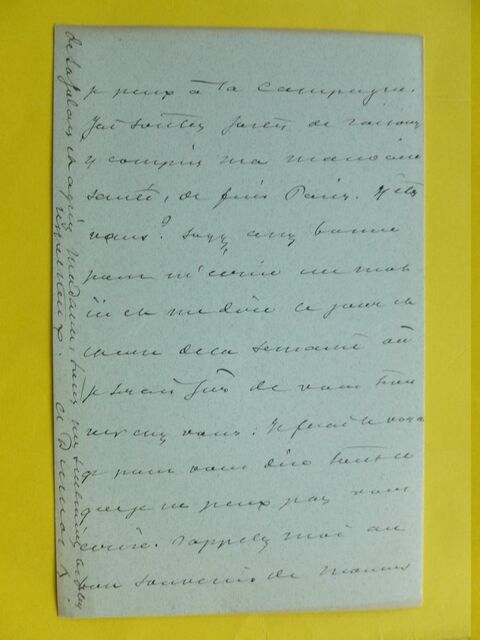 je peux à la campagne.
J'ai toutes sortes de raisons
y compris ma mauvaise
santé, de fuir Paris. Y êtes
vous? Soyez assez bonne
pour m'écrire un mot
ici et me dire le jour et
l'heure de la semaine où
je serais sûr de vous trou
ver chez vous. Je ferai le voya
ge pour vous dire tout ce
que je ne peux pas vous
écrire. Rappelez moi au
bon souvenir de Monsieur
et agréez Madame, tous mes
respectueux.